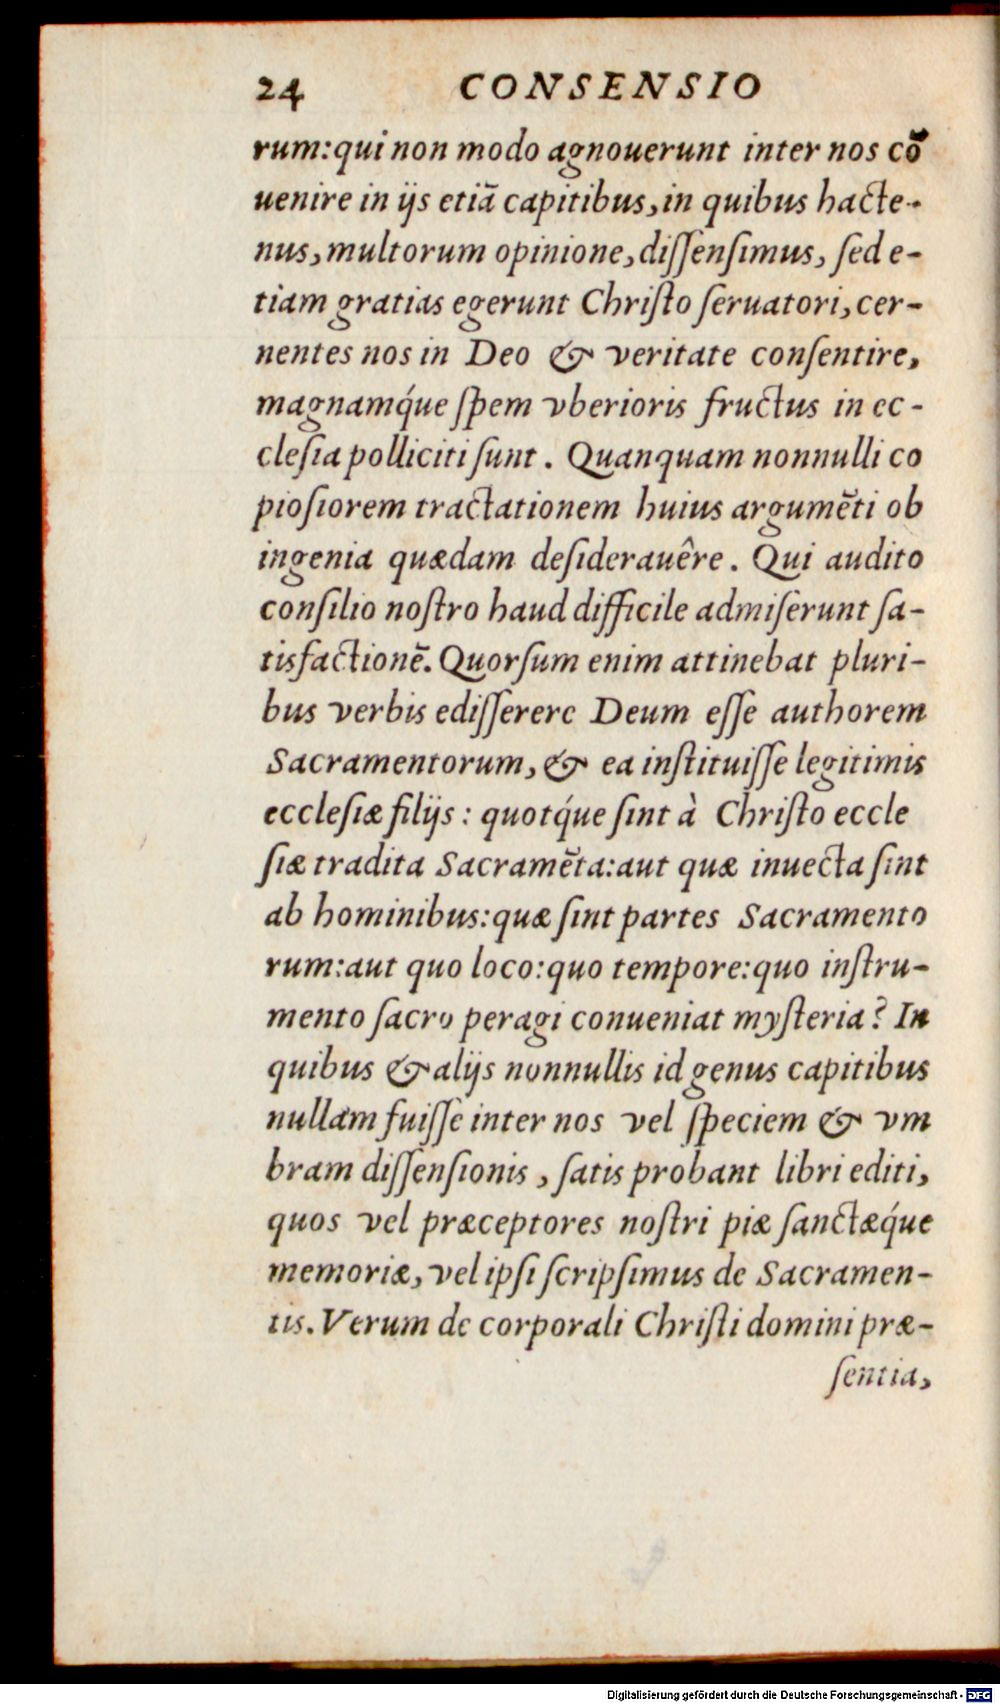 24 CONSENSIO
rum:qui non modo agnouerunt inter nos cō
uenire in ijs etiā capitibus, in quibus hacte-
nus, multorum opinione, diſſenſimus, ſed e-
tiam gratias egerunt Chriſto ſeruatori, cer-
nentes nos in Deo & veritate conſentire,
magnamq́ue ſpem vberioris fructus in ec-
cleſia polliciti ſunt. Quanquam nonnulli co
pioſiorem tractationem huius argumēti ob
ingenia quædam deſiderauêre. Qui audito
conſilio noſtro haud difficile admiſerunt ſa-
tisfactionē. Quorſum enim attinebat pluri-
bus verbis ediſſerere Deum eſſe authorem
Sacramentorum, & ea inſtituiſſe legitimis
eccleſiæ filijs: quotq́ue ſint à Chriſto eccle
ſiæ tradita Sacramēta:aut quæ inuecta ſint
ab hominibus:quæ ſint partes Sacramento
rum:aut quo loco:quo tempore:quo inſtru-
mento ſacro peragi conueniat myſteria? In
quibus & alijs nonnullis id genus capitibus
nullam fuiſſe inter nos vel ſpeciem & vm
bram diſſenſionis, ſatis probant libri editi,
quos vel præceptores noſtri piæ ſanctæq́ue
memoriæ, vel ipſi ſcripſimus de Sacramen-
tis. Verum de corporali Chriſti domini præ-
ſentia,
Digitalisierung gefördert durch die Deutsche Forschungsgemeinschaft - DFG